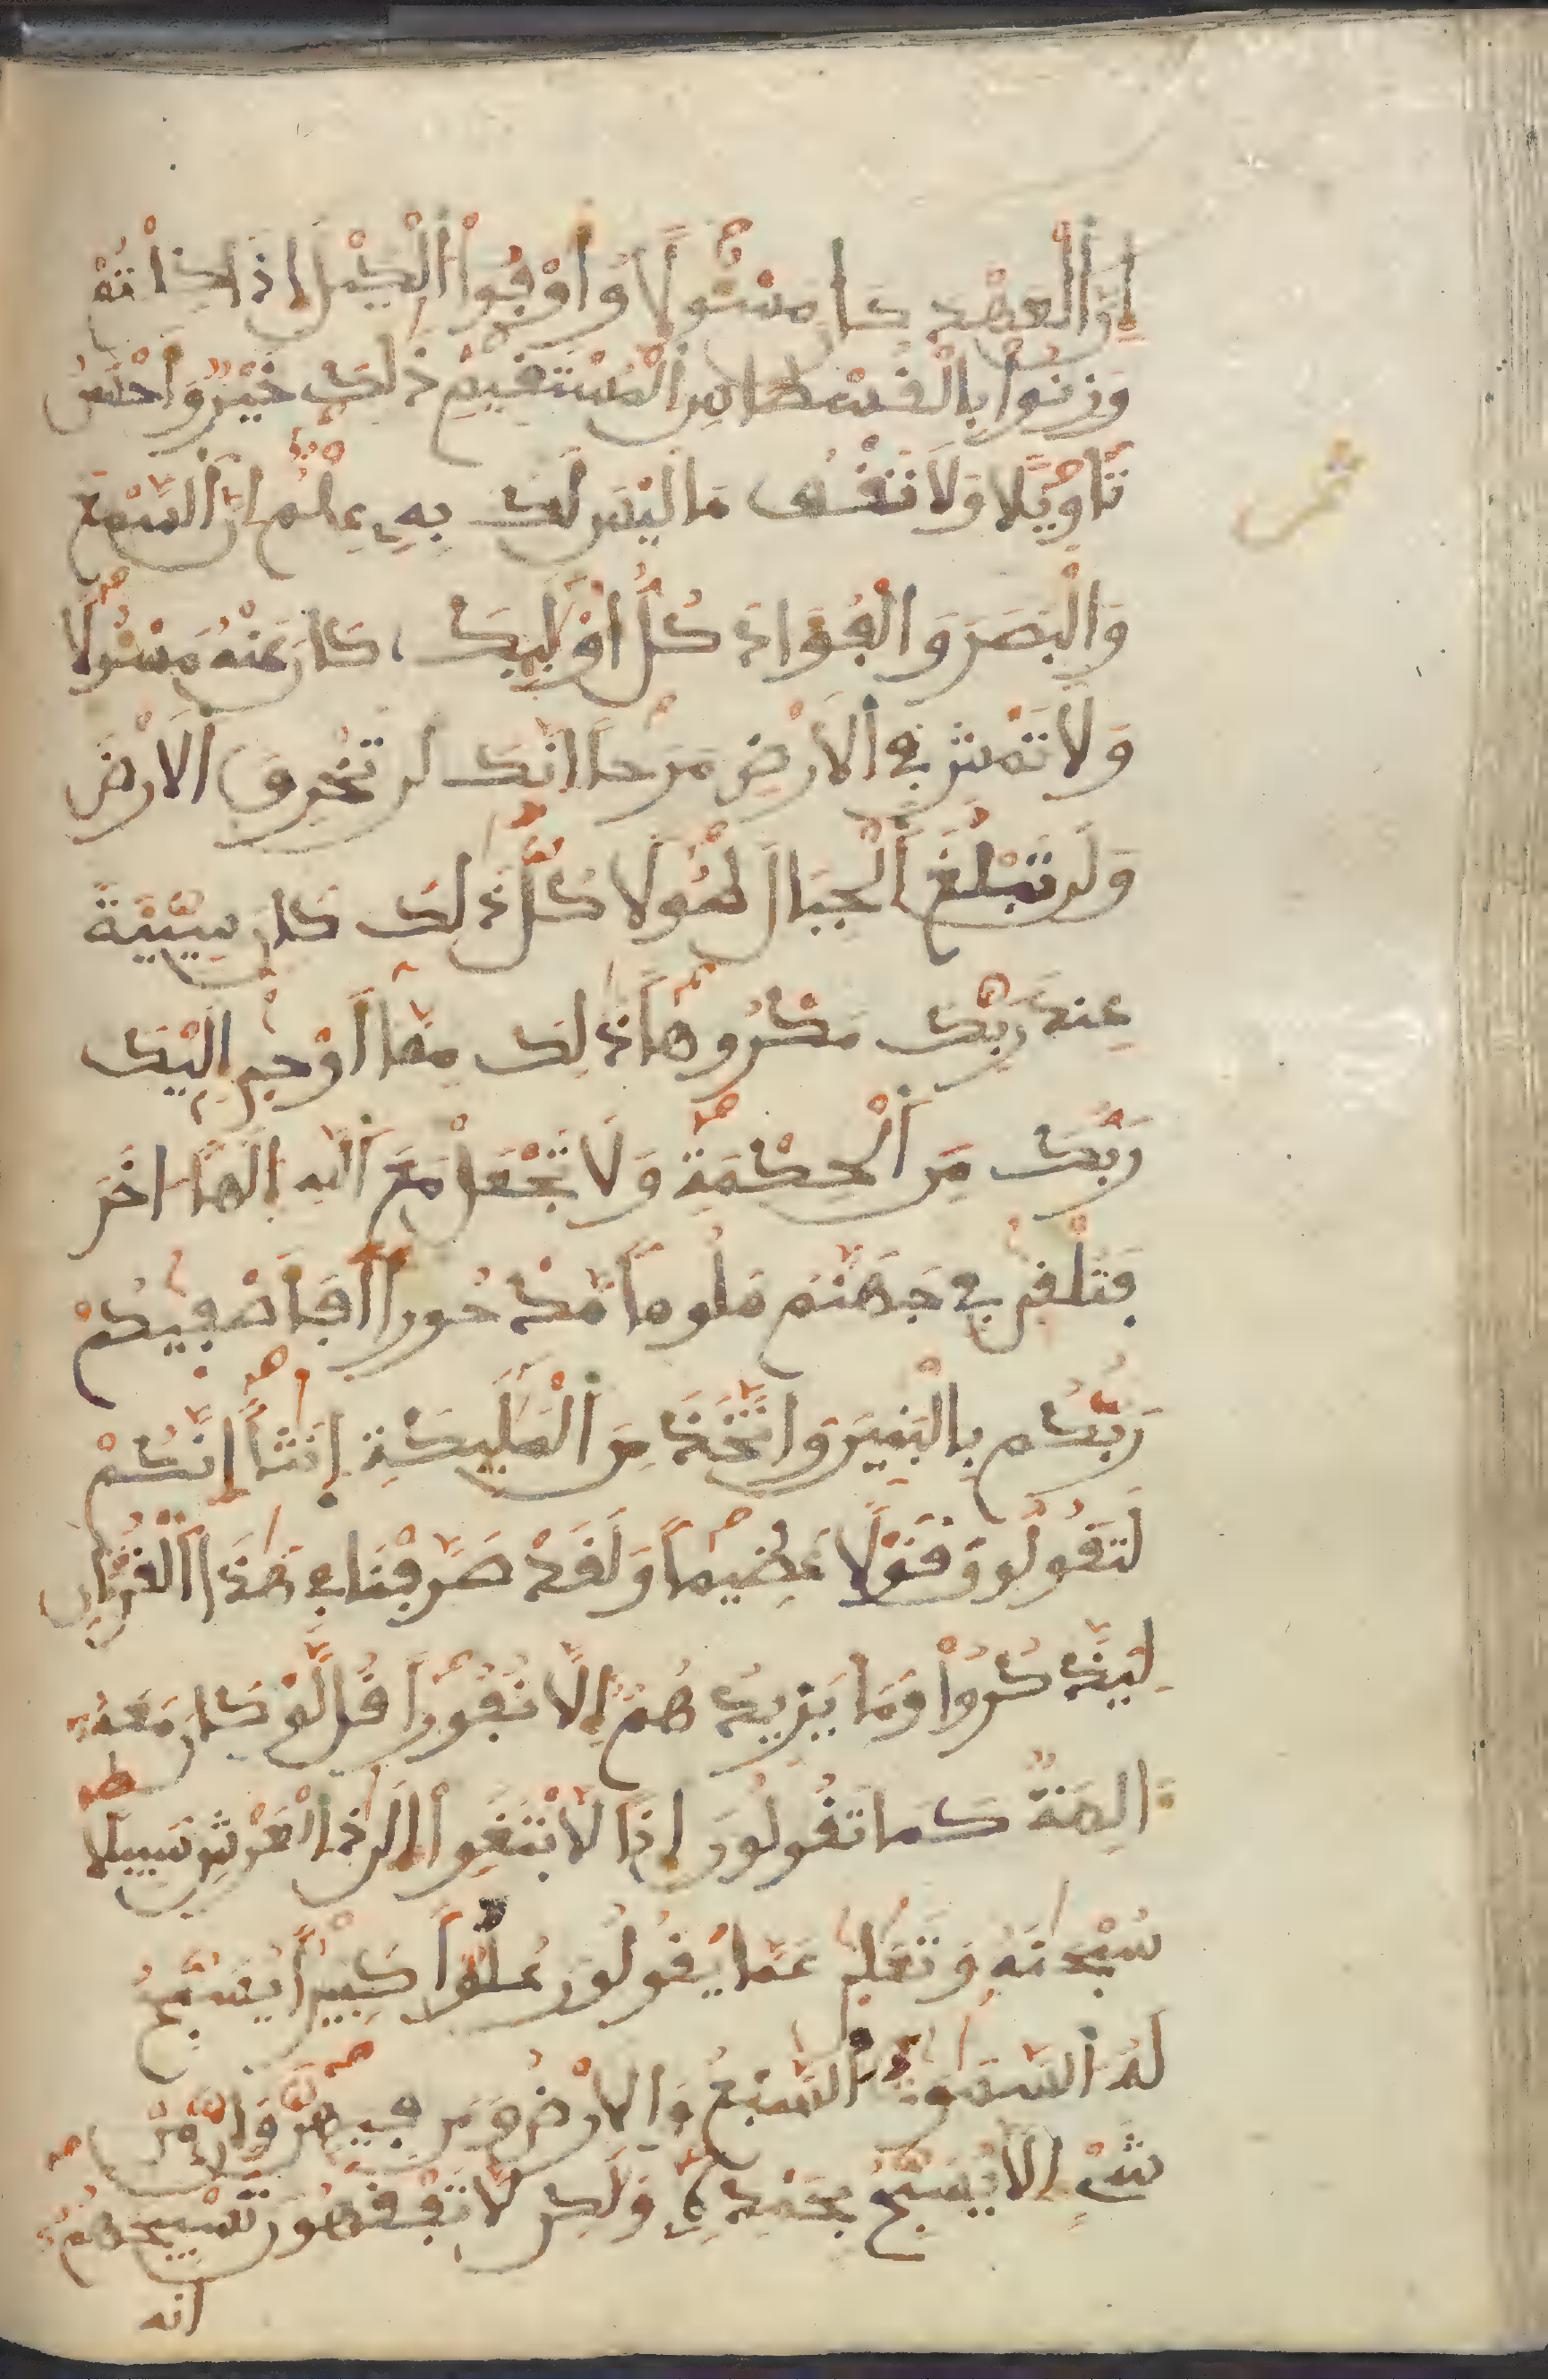 إن العهد كان مسئولا وأوفوا الكيل إذا كلتم
وزنوا بالقسطاس المستقيم ذلك خير وأحسن
تأويلا ولا تقف ما ليس لك به علم إن السمع
والبصر والفؤاد كل أولئك كان عنه مسئولا
ولا تمش في الأرض مرحا إنك لن تخرق الأرض
ولن تبلغ الجبال طولا كل ذلك كان سيئة
عند ربك مكروها ذلك مما أوحى إليك
ربك من الحكمة ولا تجعل مع الله إلها اخر
فتلقى في جهنم ملوما مدحورا أفأصفيكم
ربكم بالبنين واتخذ من الملئكة إنثا إنكم
لتقولون قولا عظيما ولقد صرفنا في هذا القرءان
ليذكروا وما يزيدهم إلا نفورا قل لو كان معه
ءالهة كما تقولون إذا لابتغوا إلى ذي العرش سبيلا
سبحنه وتعلى عما يقولون علوا كبيرا يسبح
له السموت السبع والأرض ومن فيهن وإن من
شيء إلا يسبح بحمده ولكن لا تفقهون تسبيحهم
انه